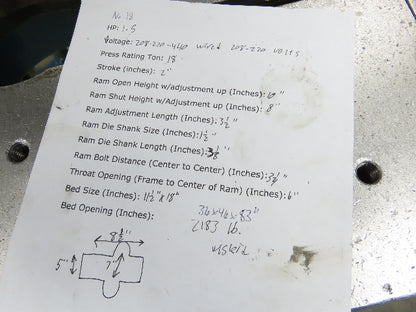 No 18
HP: 1.5
Voltage: 208-220-440 wired 208-220 volts
Press Rating Ton: 18
Stroke (inches): 2"
Ram Open Height w/adjustment up (Inches): "
Ram Shut Height w/Adjustment up (Inches): 8"
Ram Adjustment Length (Inches): 3 1/2"
Ram Die Shank Size (Inches): 1 1/2"
Ram Die Shank Length (Inches): "
Ram Bolt Distance (Center to Center) (Inches): "
Throat Opening (Frame to Center of Ram) (Inches): 6"
Bed Size (Inches): 11 1/2" x 18"
Bed Opening (Inches):
36x46x83"
2183 lb.
w/skid
8 1/2"
5"
7"